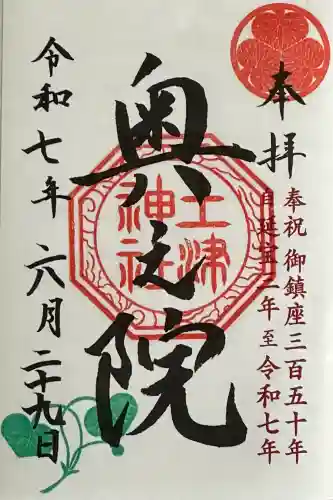 奉拝
奉祝 御鎮座三百五十年
自延宝三年 至令和七年
奥之院
土津神社
令和七年 六月二十九日